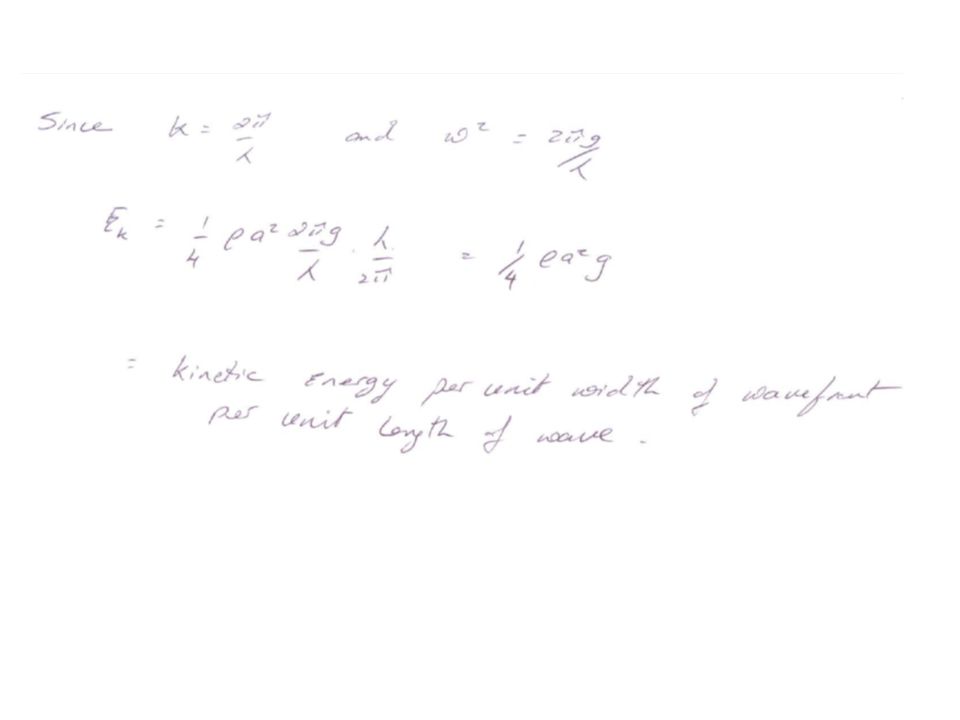 Since k = 2π/λ and ω² = 2πg/λ
Eₖ = 1/4 ρa² 2πg/λ · λ/2π = 1/4 ρa²g
= kinetic Energy per unit width of wavefront
per unit length of wave.